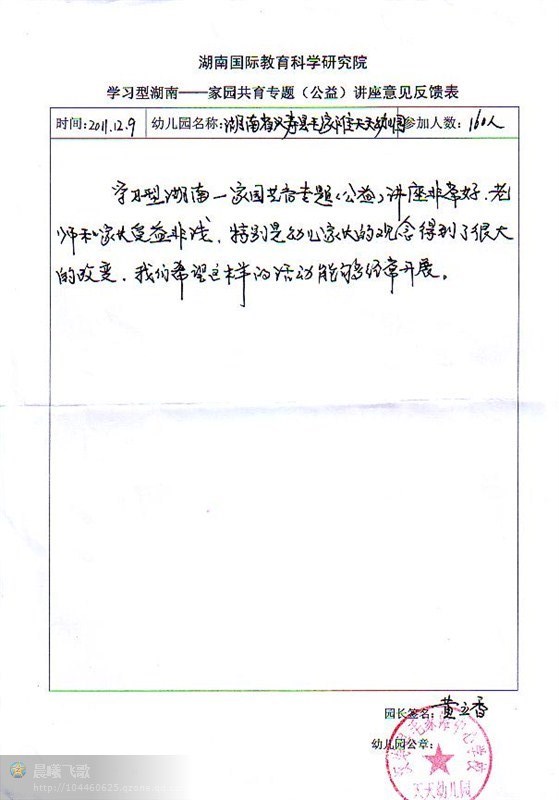 湖南国际教育科学研究院
学习型湖南——家园共育专题（公益）讲座意见反馈表
时间:2011.12.9 幼儿园名称:湖南省汉寿县毛家滩天天幼儿园 参加人数:160人
学习型湖南一家园共育专题(公益)讲座非常好.老
师和家长受益非浅.特别是幼儿家长的观念得到了很大
的改变.我们希望这样的活动能够经常开展。
园长签名:黄立香
幼儿园公章:
中心学校
天天幼儿园
晨曦飞歌